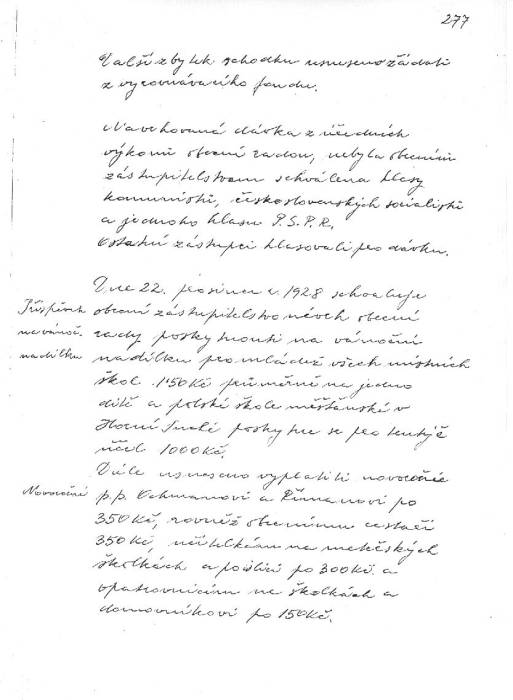 277
Další zbytek schodku usneseno žádati
z vyrovnávacího fondu.
Navrhovaná dávka z úředních
výkonů obecní radou, nebyla obecním
zastupitelstvem schválena hlasy
komunistů, československých socialistů
a jednoho hlasu P.S.P.R.
Ostatní zástupci hlasovali pro dávku.
Dne 22. prosince r. 1928 schvaluje
Příspěvek
obecní zastupitelstvo návrh obecní
na vánoč.
rady poskytnouti na vánoční
nadílku
nadílku pro mládež všech místních
škol 1150 Kč průměrně na jedno
dítě a polské škole měšťanské v
Horní Suché poskytne se pro tentýž
účel 1000 Kč.
Dále usneseno vyplatiti novoročné
Novoročné
p.p. Ochmanovi a Římanovi po
350 Kč, rovněž obecnímu cestáři
350 Kč, učitelkám na mateřských
školkách a policii po 300 Kč a
opatrovnicím na školkách a
domovníkovi po 150 Kč.